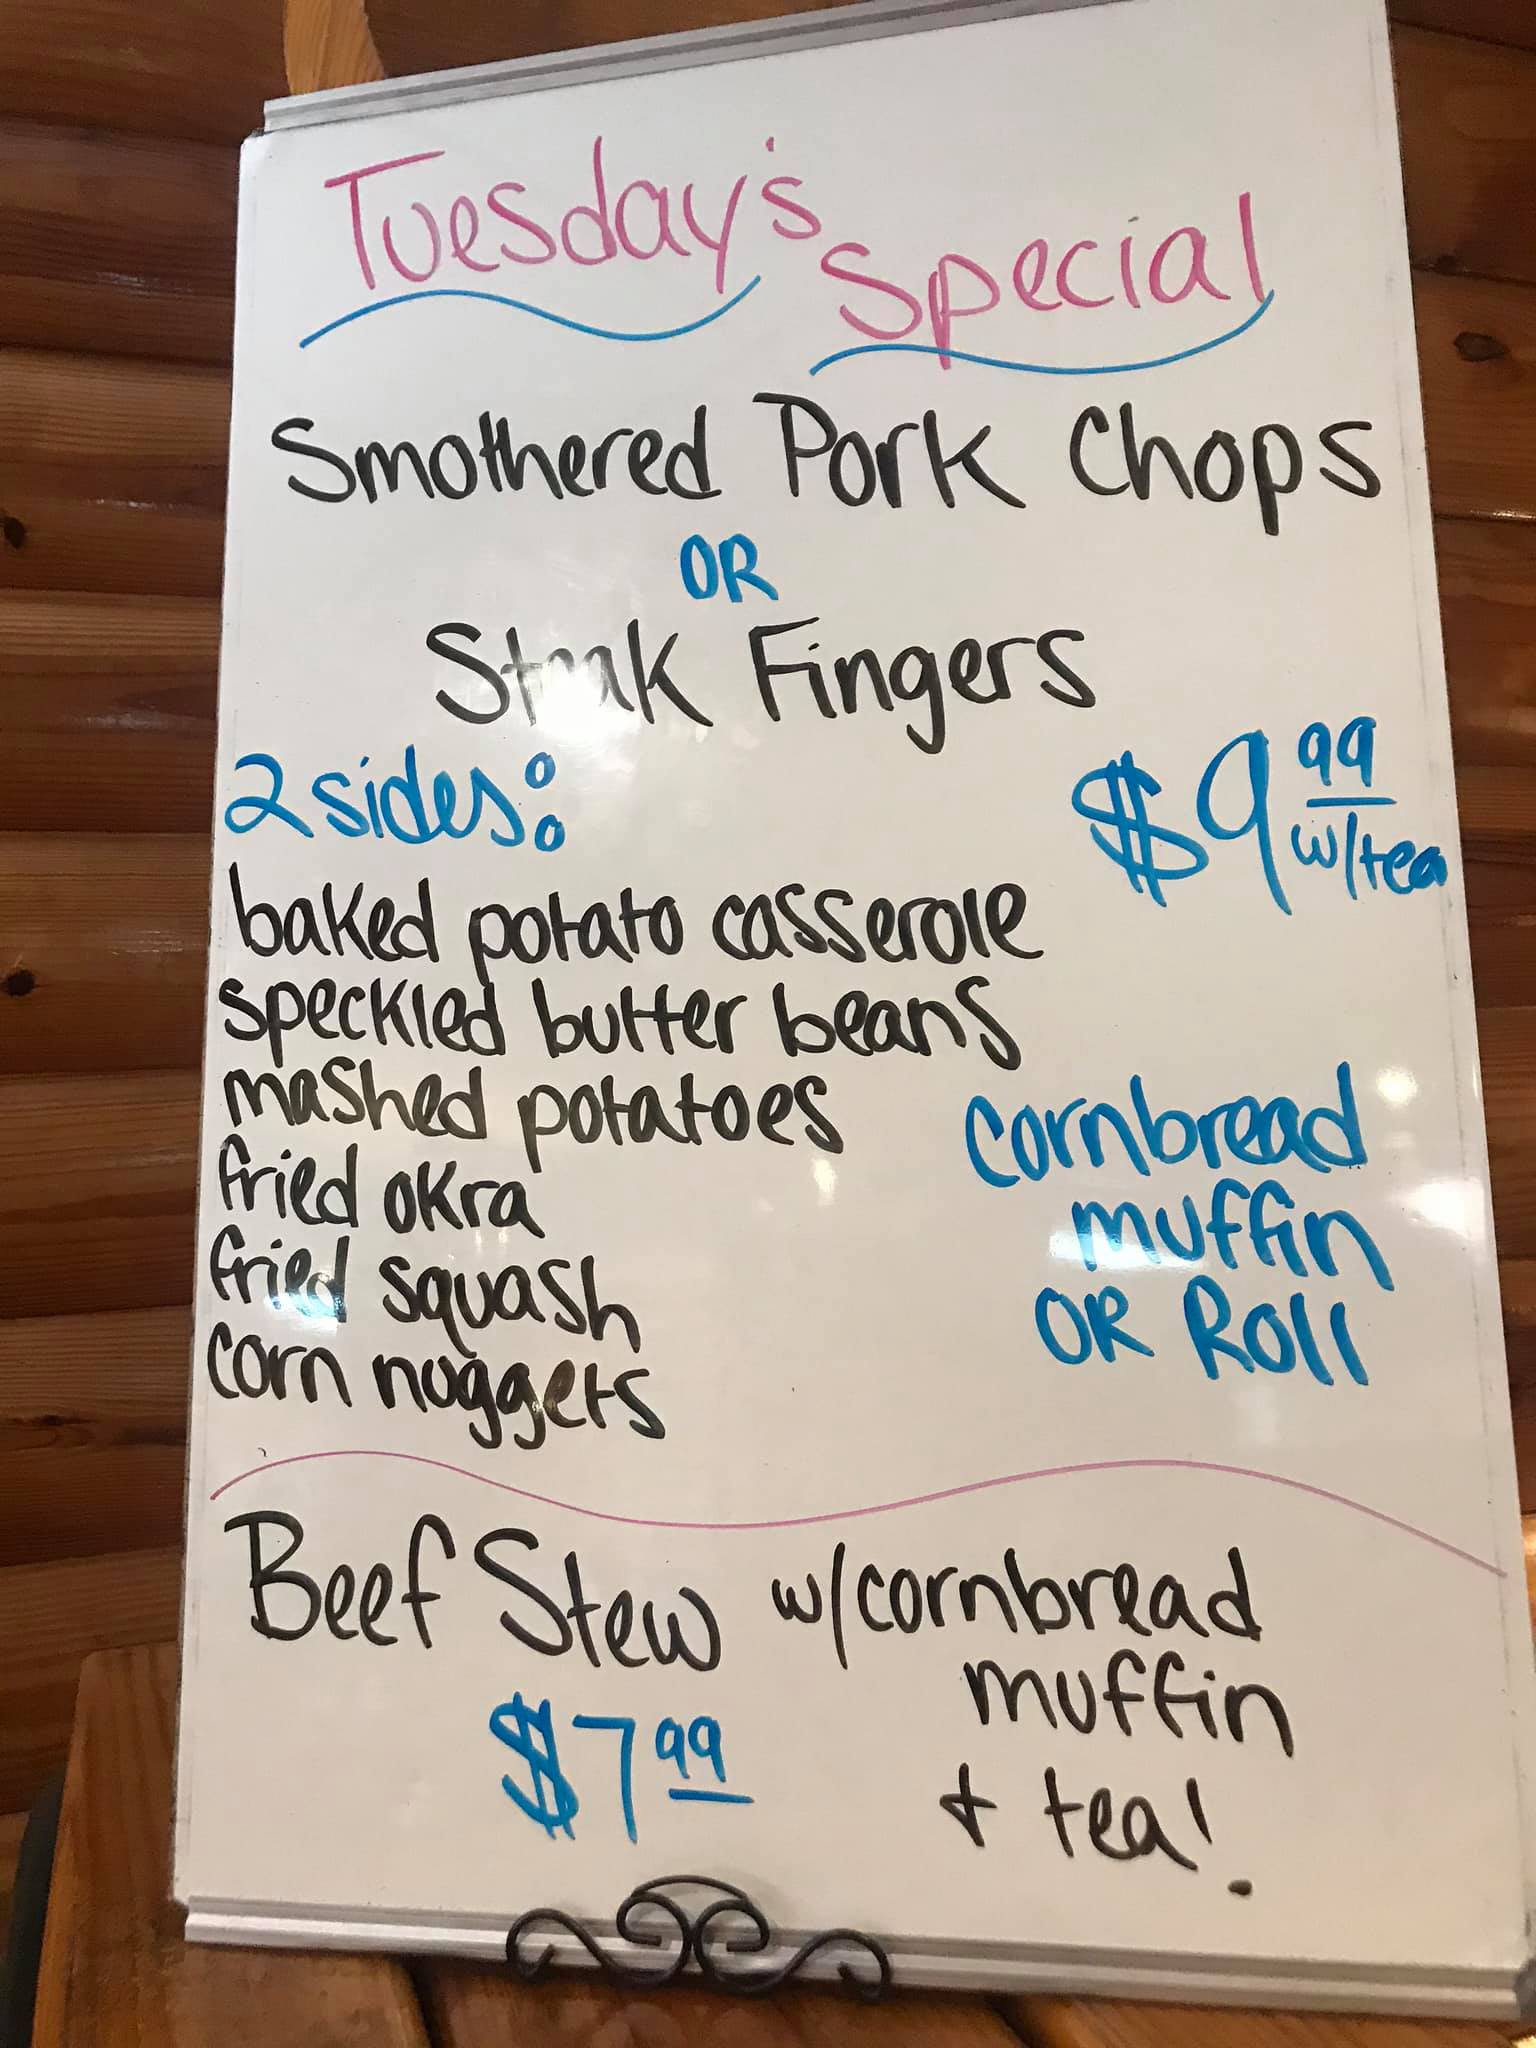 Tuesday's Special
Smothered Pork Chops
OR
Steak Fingers
2 sides:
$9.99 w/tea
baked potato casserole
speckled butter beans
mashed potatoes
fried okra
fried squash
corn nuggets
cornbread
muffin
OR Roll
Beef Stew w/cornbread
muffin
+ tea!
$7.99